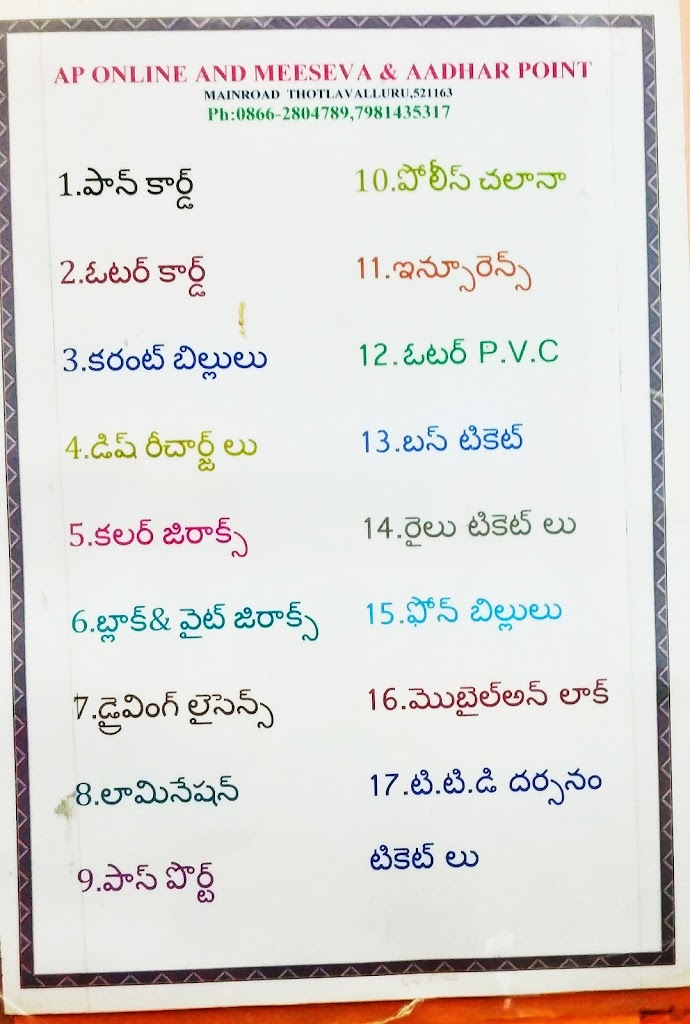 AP ONLINE AND MEESEVA & AADHAR POINT
MAINROAD THOTLAVALLURU,521163
Ph:0866-2804789,7981435317
1.పాన్ కార్డ్
2.ఓటర్ కార్డ్
3.కరంట్ బిల్లులు
4.డిష్ రీచార్జ్ లు
5.కలర్ జిరాక్స్
6.బ్లాక్& వైట్ జిరాక్స్
7.డ్రైవింగ్ లైసెన్స్
8.లామినేషన్
9.పాస్ పొర్ట్
10.పోలీస్ చలానా
11.ఇన్సూరెన్స్
12.ఓటర్ P.V.C
13.బస్ టికెట్
14.రైలు టికెట్ లు
15.ఫోన్ బిల్లులు
16.మొబైల్అన్ లాక్
17.టి.టి.డి దర్సనం
టికెట్ లు